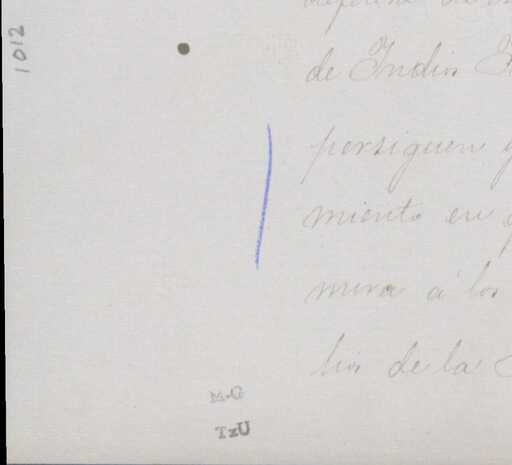 1012
de Indios
persiguen y
miento en
mira á los
de la
M-O
TzU